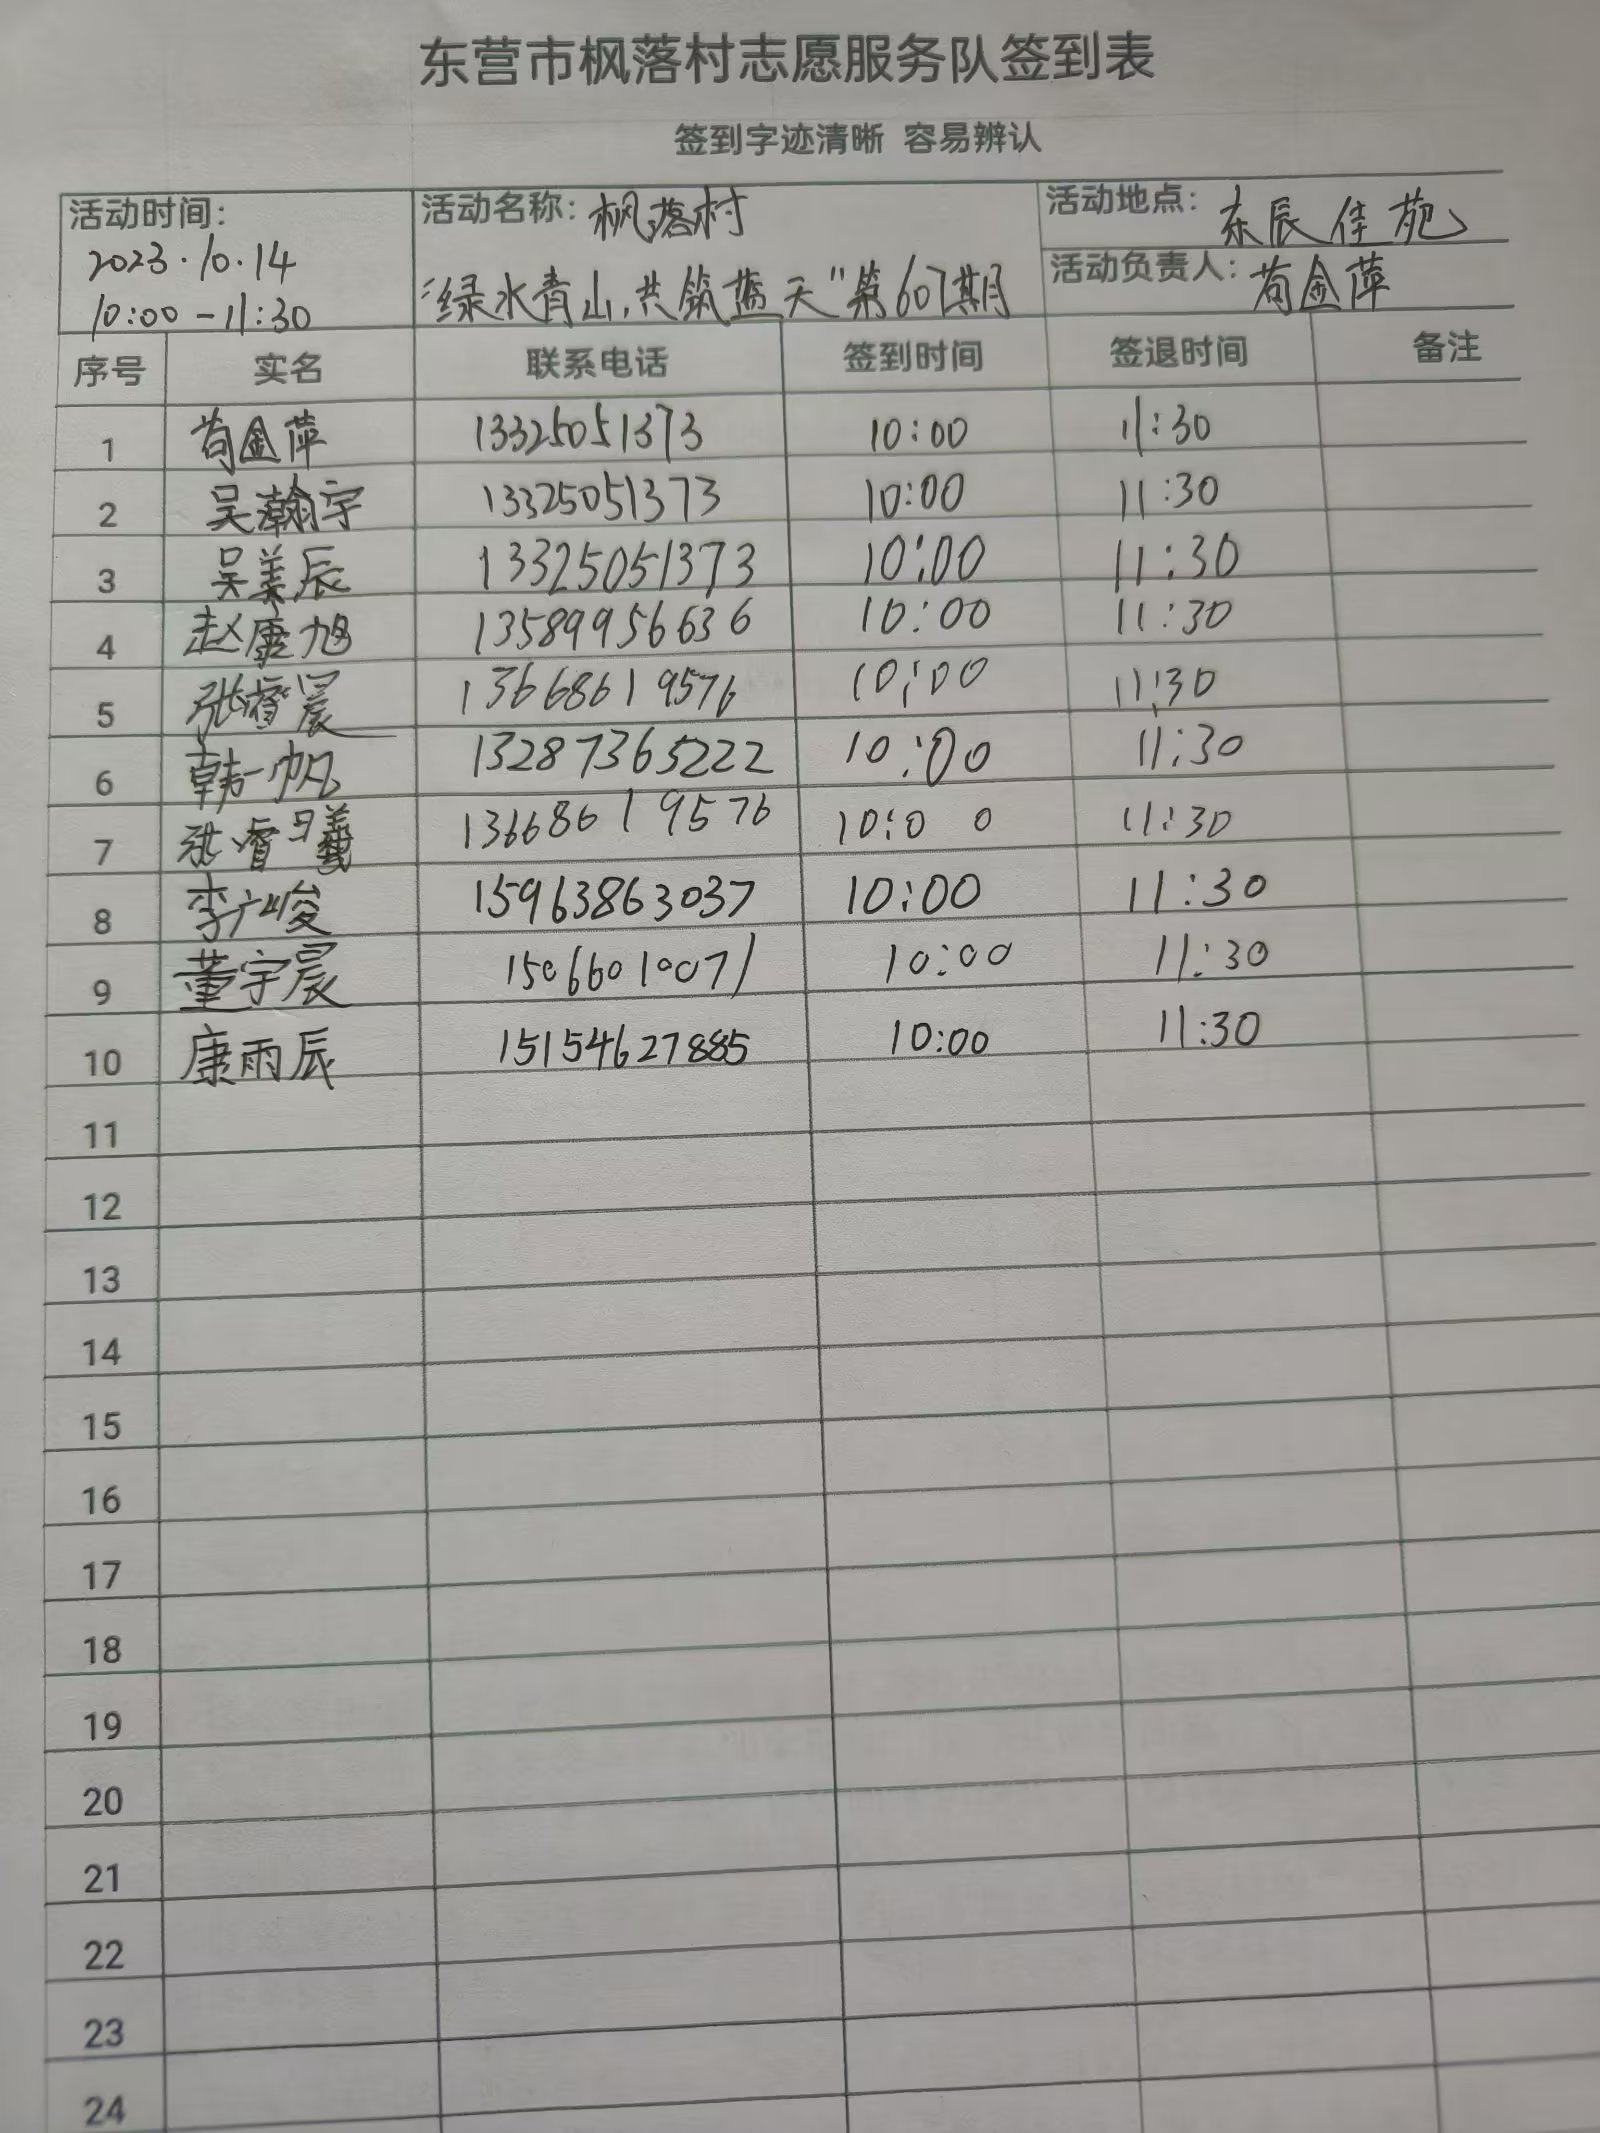 东营市枫落村志愿服务队签到表
签到字迹清晰 容易辨认
活动时间: 2023.10.14 10:00-11:30
活动名称: 枫落村 "绿水青山,共筑蓝天"第607期
活动地点: 东辰佳苑
活动负责人: 荀金萍
序号 实名 联系电话 签到时间 签退时间 备注
1 荀金萍 13325051373 10:00 11:30
2 吴瀚宇 13325051373 10:00 11:30
3 吴美辰 13325051373 10:00 11:30
4 赵康旭 13589956636 10:00 11:30
5 张睿晨 13668619576 10:00 11:30
6 韩一帆 13287365222 10:00 11:30
7 张睿曦 13668619576 10:00 11:30
8 李广峻 15963863037 10:00 11:30
9 董宇晨 15066010071 10:00 11:30
10 康雨辰 15154627885 10:00 11:30
11
12
13
14
15
16
17
18
19
20
21
22
23
24